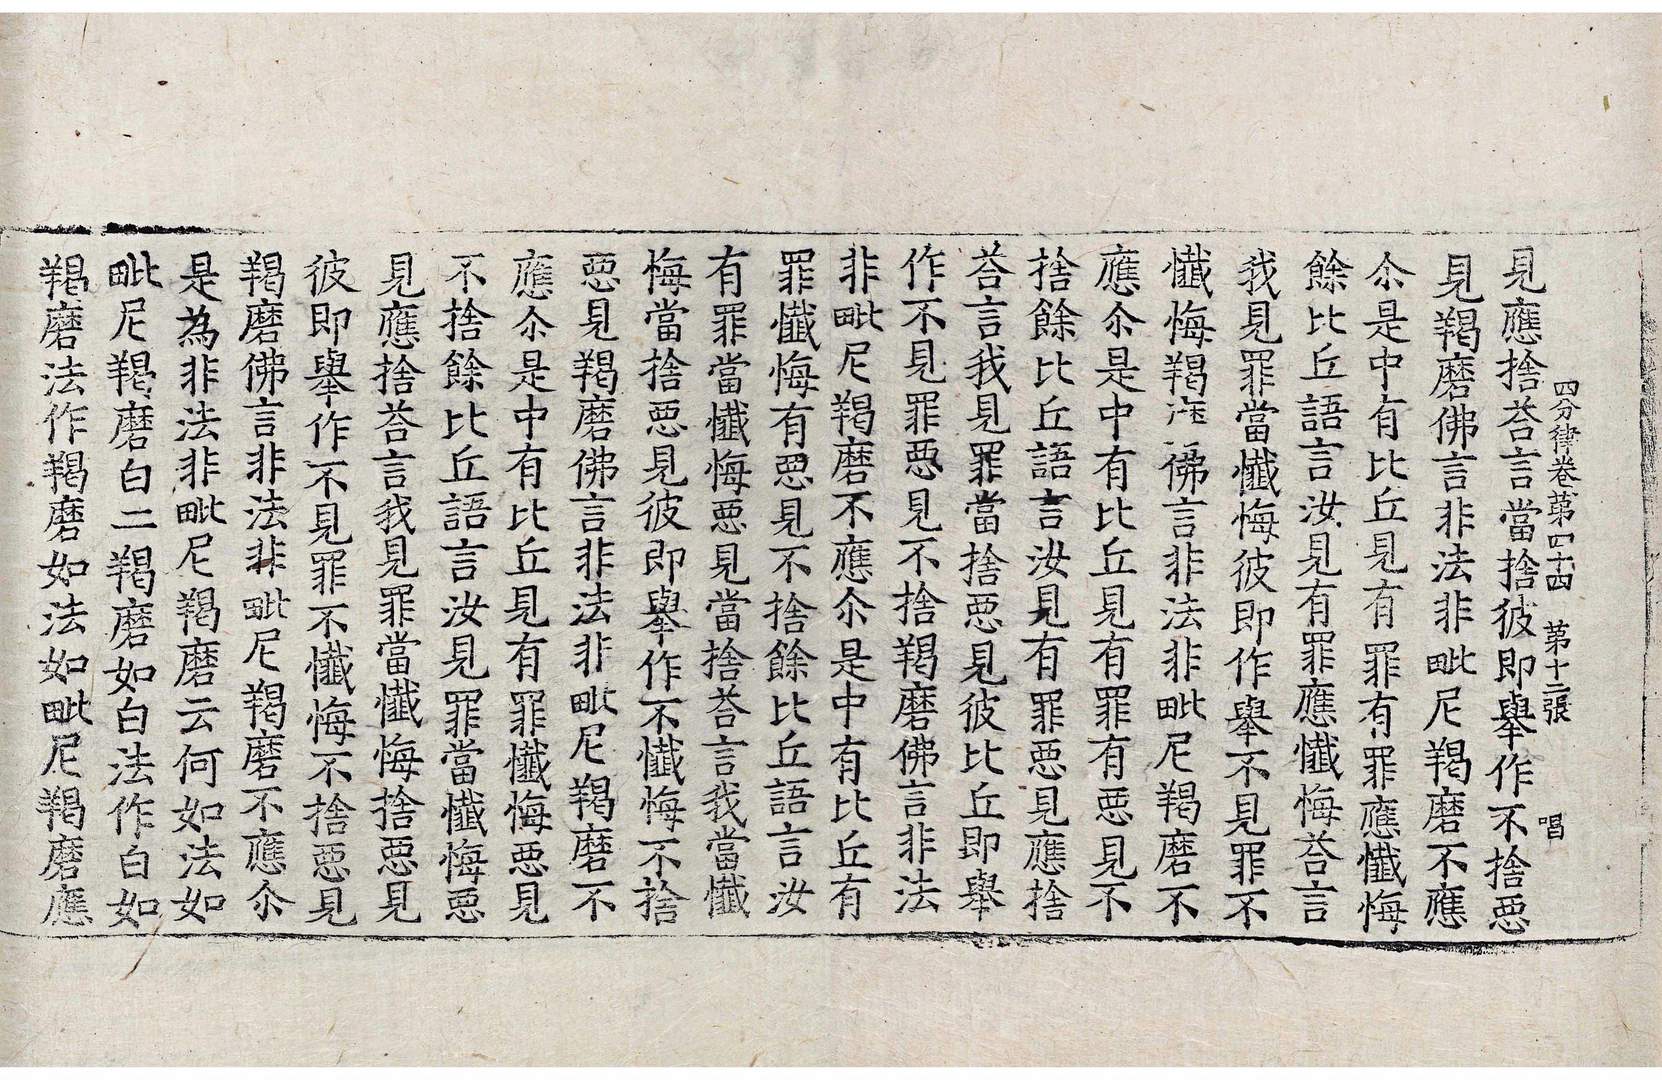 四分律卷第四十四 第十三張 唱
見應捨荅言當捨彼即舉作不捨惡
見羯磨佛言非法非毗尼羯磨不應
尒是中有比丘見有罪有罪應懺悔
餘比丘語言汝見有罪應懺悔荅言
我見罪當懺悔彼即作舉不見罪不
懺悔羯磨佛言非法非毗尼羯磨不
應尒是中有比丘見有罪有惡見不
捨餘比丘語言汝見有罪惡見應捨
荅言我見罪當捨惡見彼比丘即舉
作不見罪惡見不捨羯磨佛言非法
非毗尼羯磨不應尒是中有比丘有
罪懺悔有惡見不捨餘比丘語言汝
有罪當懺悔惡見當捨荅言我當懺
悔當捨惡見彼即舉作不懺悔不捨
惡見羯磨佛言非法非毗尼羯磨不
應尒是中有比丘見有罪懺悔惡見
不捨餘比丘語言汝見罪當懺悔惡
見應捨荅言我見罪當懺悔捨惡見
彼即舉作不見罪不懺悔不捨惡見
羯磨佛言非法非毗尼羯磨不應尒
是為非法非毗尼羯磨云何如法如
毗尼羯磨白二羯磨如白法作白如
羯磨法作羯磨如法如毗尼羯磨應